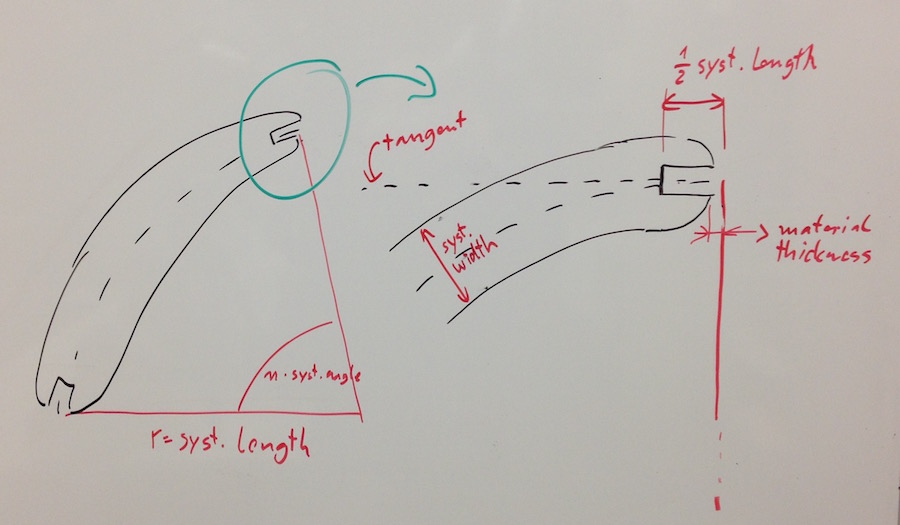 1/2 syst. length
tangent
syst.
width
material
thickness
n · syst. angle
r = syst. length